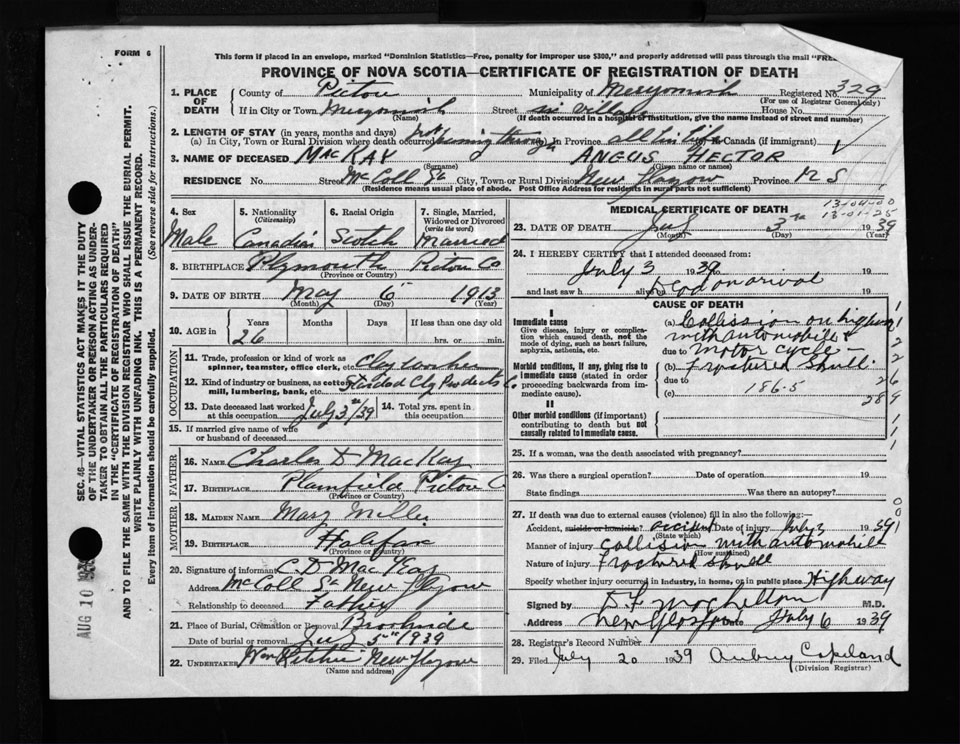 FORM 6
This form if placed in an envelope, marked "Dominion Statistics—Free, penalty for improper use $300," and properly addressed will pass through the mail "FREE
PROVINCE OF NOVA SCOTIA—CERTIFICATE OF REGISTRATION OF DEATH
1. PLACE OF DEATH County of Pictou Municipality of Merigomish Registered No. 329
(For use of Registrar General only)
If in City or Town Merigomish (Name) Street in Village House No.
(If death occurred in a hospital or institution, give the name instead of street and number)
2. LENGTH OF STAY (in years, months and days)
(a) In City, Town or Rural Division where death occurred just passing through (b) In Province all his life (c) In Canada (if immigrant)
3. NAME OF DECEASED MacKAY ANGUS HECTOR
(Surname) (Given name or names)
RESIDENCE No. Street McColl St City, Town or Rural Division New Glasgow Province N S
(Residence means usual place of abode. Post Office Address for residents in rural parts not sufficient)
4. Sex Male
5. Nationality (Citizenship) Canadian
6. Racial Origin Scotch
7. Single, Married, Widowed or Divorced (write the word) Married
8. BIRTHPLACE Plymouth Pictou Co
(Province or Country)
9. DATE OF BIRTH May 6 1913
(Month) (Day) (Year)
10. AGE in Years Months Days If less than one day old
26 hrs. or min.
OCCUPATION
11. Trade, profession or kind of work as spinner, teamster, office clerk, etc. Clay worker
12. Kind of industry or business, as cotton mill, lumbering, bank, etc. Standard Clay Products Co
13. Date deceased last worked at this occupation July 3rd/39
14. Total yrs. spent in this occupation
15. If married give name of wife or husband of deceased
FATHER
16. NAME Charles D MacKay
17. BIRTHPLACE Plainfield Pictou C
(Province or Country)
MOTHER
18. MAIDEN NAME Mary Miller
19. BIRTHPLACE Halifax
(Province or Country)
20. Signature of informant C. D. MacKay
Address McColl St New Glasgow
Relationship to deceased Father
21. Place of Burial, Cremation or Removal Brookside
Date of burial or removal July 5th 1939
22. UNDERTAKER Wm Ritchie New Glasgow
(Name and address)
MEDICAL CERTIFICATE OF DEATH
13-04-00
13-01-25
23. DATE OF DEATH July 3rd 1939
(Month) (Day) (Year)
24. I HEREBY CERTIFY that I attended deceased from:
July 3 1939 to 19
and last saw h alive on Dead on arival 19
CAUSE OF DEATH
I
Immediate cause
Give disease, injury or complication which caused death, not the mode of dying, such as heart failure, asphyxia, asthenia, etc.
(a) Collission on highway
with automobile &
due to Motor cycle
Morbid conditions, if any, giving rise to immediate cause (stated in order proceeding backwards from immediate cause)
(b) Fractured Skull
due to
(c) 186.5
II
Other morbid conditions (if important) contributing to death but not causally related to immediate cause.
25. If a woman, was the death associated with pregnancy?
26. Was there a surgical operation? Date of operation 19
State findings Was there an autopsy?
27. If death was due to external causes (violence) fill in also the following:
Accident, suicide or homicide? accident Date of injury July 3 1939
(State which)
Manner of injury Collision with automobile
(How sustained)
Nature of injury Fractured Skull
Specify whether injury occurred in industry, in home, or in public place Highway
Signed by M.D.
Address New Glasgow Date July 6 1939
28. Registrar's Record Number
29. Filed July 20 1939 Aubrey Copeland
(Division Registrar)
SEC. 46—VITAL STATISTICS ACT MAKES IT THE DUTY
OF THE UNDERTAKER OR PERSON ACTING AS UNDER-
TAKER TO OBTAIN ALL THE PARTICULARS REQUIRED
IN THE "CERTIFICATE OF REGISTRATION OF DEATH"
AND TO FILE THE SAME WITH THE DIVISION REGISTRAR WHO SHALL ISSUE THE BURIAL PERMIT.
WRITE PLAINLY WITH UNFADING INK. THIS IS A PERMANENT RECORD.
Every item of information should be carefully supplied. (See reverse side for instructions.)
AUG 10